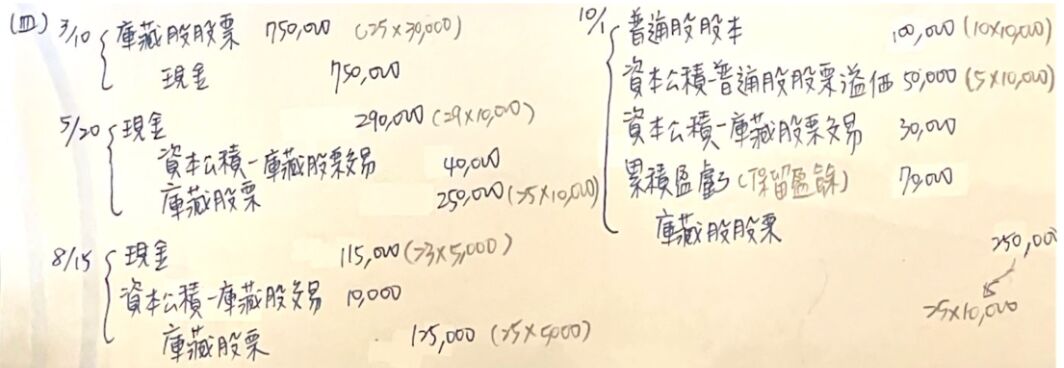 (四) 3/10 庫藏股股票 750,000 (25×30,000)
現金 750,000
5/20 現金 290,000 (29×10,000)
資本公積-庫藏股票交易 40,000
庫藏股票 250,000 (25×10,000)
8/15 現金 115,000 (23×5,000)
資本公積-庫藏股交易 10,000
庫藏股票 125,000 (25×5000)
10/1 普通股股本 100,000 (10×10,000)
資本公積-普通股股票溢価 50,000 (5×10,000)
資本公積-庫藏股票交易 30,000
累積盈虧(保留盈餘) 70,000
庫藏股股票 250,000
25×10,000